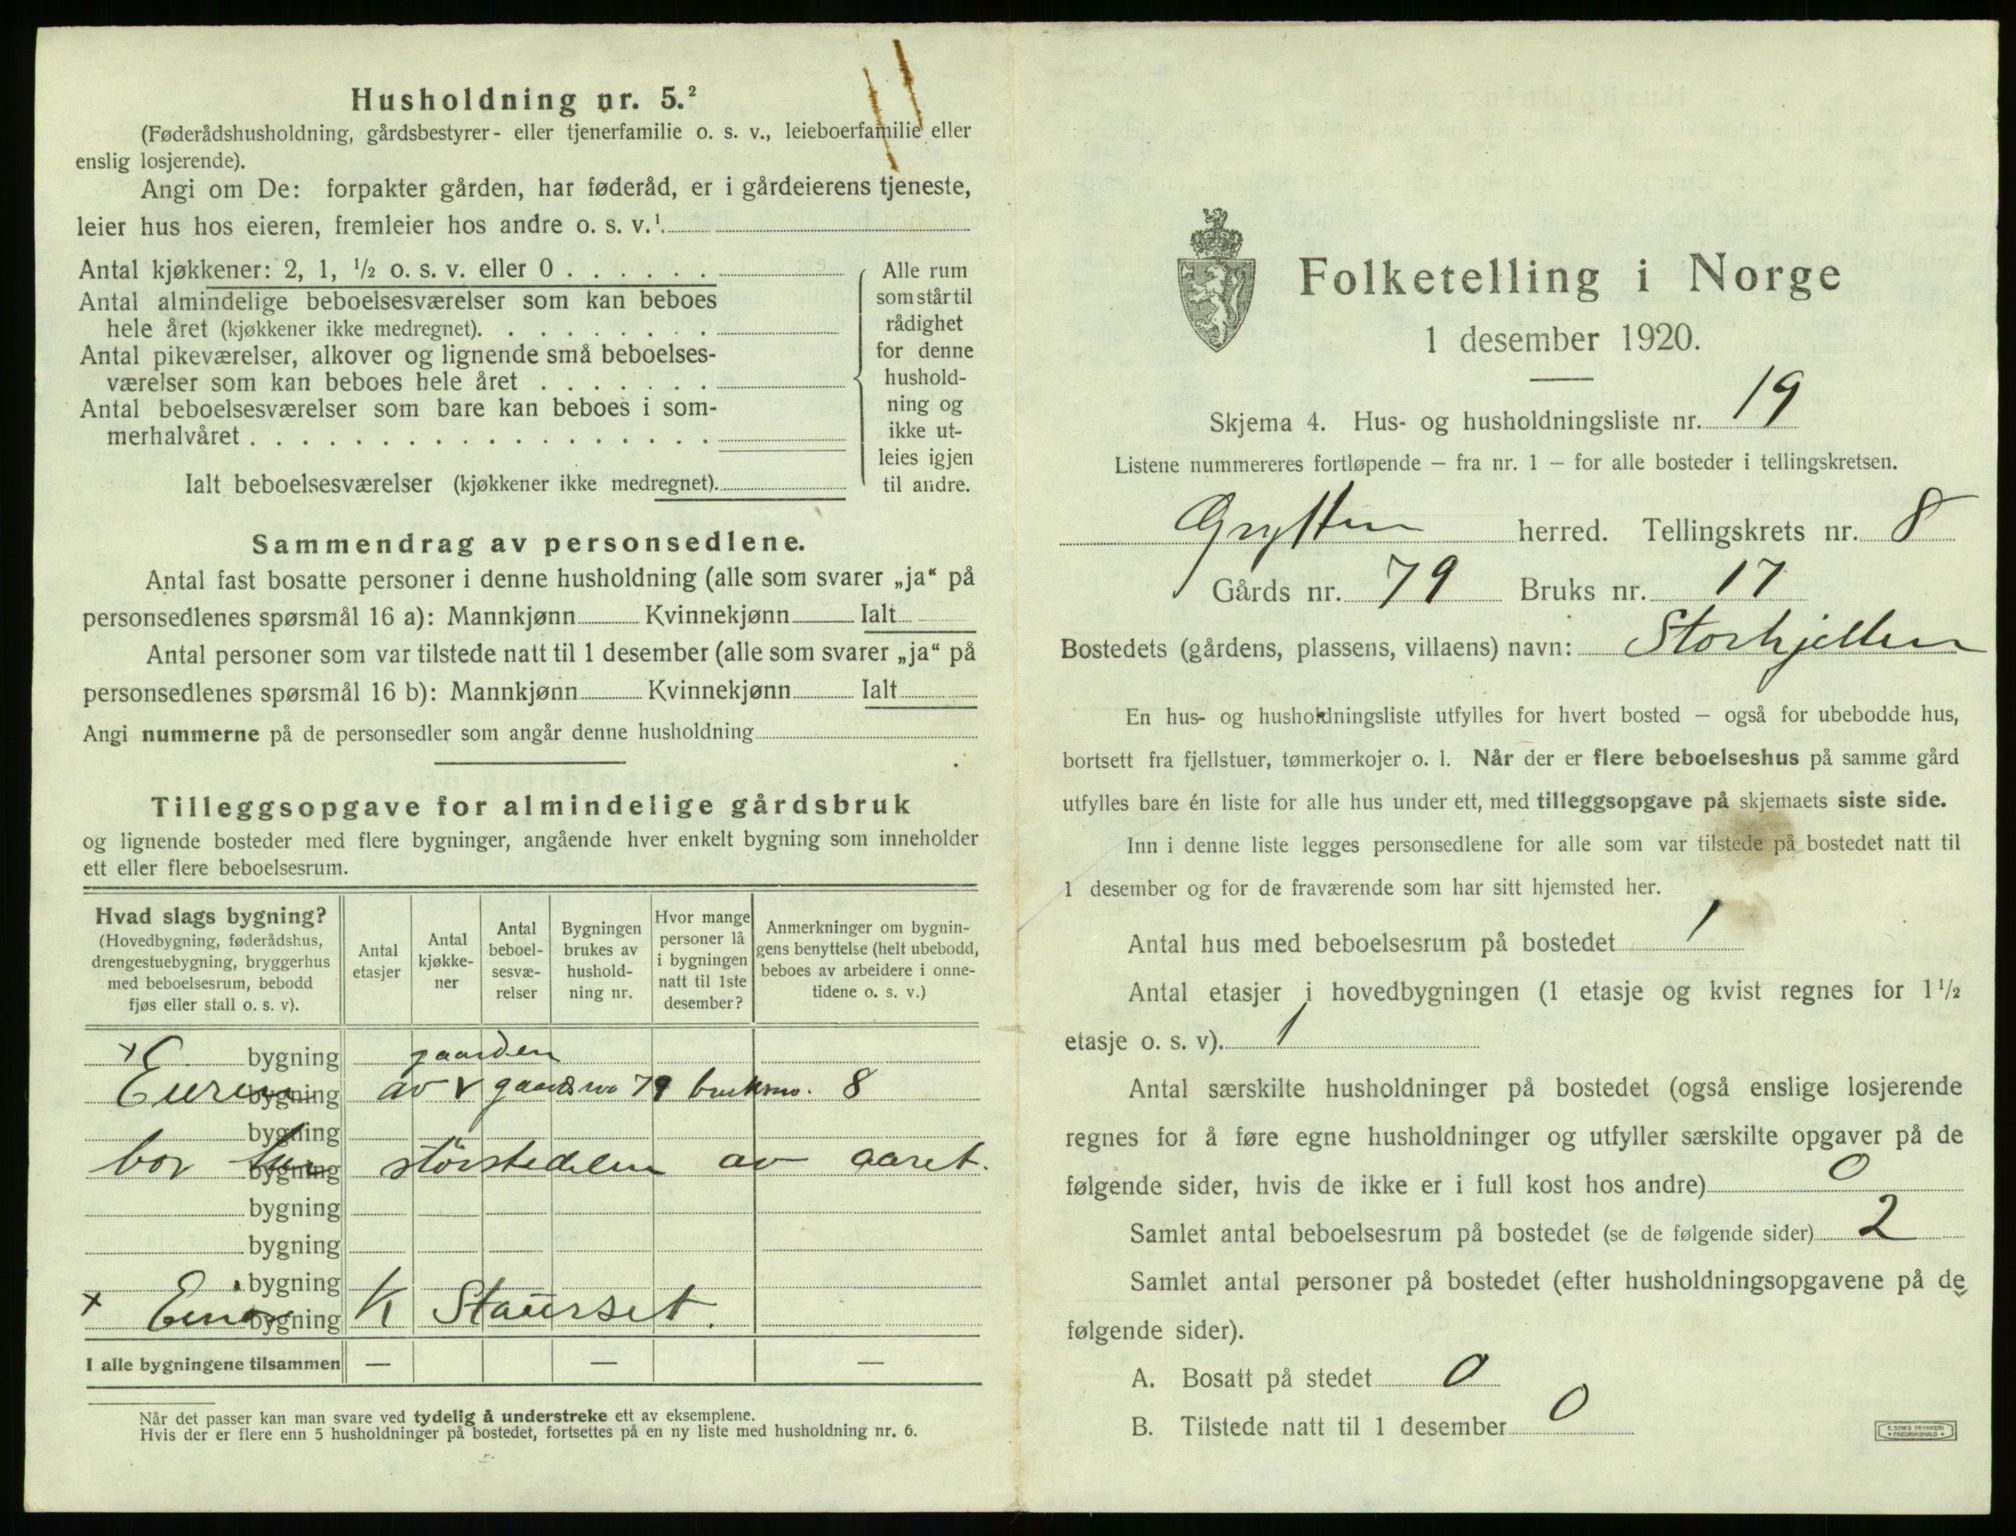 Husholdning nr. 5.²
(Føderådshusholdning, gårdsbestyrer- eller tjenerfamilie o. s. v., leieboerfamilie eller
enslig losjerende).
Angi om De: forpakter gården, har føderåd, er i gårdeierens tjeneste,
leier hus hos eieren, fremleier hos andre o. s. v.¹
Antal kjøkkener: 2, 1, ½ o. s. v. eller 0
Antal almindelige beboelsesværelser som kan beboes
hele året (kjøkkener ikke medregnet).
Antal pikeværelser, alkover og lignende små beboelses-
værelser som kan beboes hele året
Antal beboelsesværelser som bare kan beboes i som-
merhalvåret
Ialt beboelsesværelser (kjøkkener ikke medregnet).
Alle rum
som står til
rådighet
for denne
hushold-
ning og
ikke ut-
leies igjen
til andre.
Sammendrag av personsedlene.
Antal fast bosatte personer i denne husholdning (alle som svarer „ja“ på
personsedlenes spørsmål 16 a): Mannkjønn Kvinnekjønn Ialt
Antal personer som var tilstede natt til 1 desember (alle som svarer „ja“ på
personsedlenes spørsmål 16 b): Mannkjønn Kvinnekjønn Ialt
Angi nummerne på de personsedler som angår denne husholdning
Tilleggsopgave for almindelige gårdsbruk
og lignende bosteder med flere bygninger, angående hver enkelt bygning som inneholder
ett eller flere beboelsesrum.
Hvad slags bygning?
(Hovedbygning, føderådshus,
drengestuebygning, bryggerhus
med beboelsesrum, bebodd
fjøs eller stall o. s. v).
Antal
etasjer
Antal
kjøkke-
ner
Antal
beboel-
sesvæ-
relser
Bygningen
brukes av
hushold-
ning nr.
Hvor mange
personer lå
i bygningen
natt til 1ste
desember?
Anmerkninger om bygnin-
gens benyttelse (helt ubebodd,
beboes av arbeidere i onne-
tidene o. s. v.)
x E. bygning gaarden
bygning av gaardsno 79 bruksno. 8
bygning
bor bygning størstedelen av aaret.
bygning
bygning
bygning
x bygning K Staurset.
I alle bygningene tilsammen — — —
Når det passer kan man svare ved tydelig å understreke ett av eksemplene.
Hvis der er flere enn 5 husholdninger på bostedet, fortsettes på en ny liste med husholdning nr. 6.
Folketelling i Norge
1 desember 1920.
Skjema 4. Hus- og husholdningsliste nr. 19
Listene nummereres fortløpende – fra nr. 1 – for alle bosteder i tellingskretsen.
Grytten herred. Tellingskrets nr. 8
Gårds nr. 79 Bruks nr. 17
Bostedets (gårdens, plassens, villaens) navn: Storhjellen
En hus- og husholdningsliste utfylles for hvert bosted – også for ubebodde hus,
bortsett fra fjellstuer, tømmerkojer o. l. Når der er flere beboelseshus på samme gård
utfylles bare én liste for alle hus under ett, med tilleggsopgave på skjemaets siste side.
Inn i denne liste legges personsedlene for alle som var tilstede på bostedet natt til
1 desember og for de fraværende som har sitt hjemsted her.
Antal hus med beboelsesrum på bostedet 1
Antal etasjer i hovedbygningen (1 etasje og kvist regnes for 1½
etasje o. s. v). 1
Antal særskilte husholdninger på bostedet (også enslige losjerende
regnes for å føre egne husholdninger og utfyller særskilte opgaver på de
følgende sider, hvis de ikke er i full kost hos andre) 0
Samlet antal beboelsesrum på bostedet (se de følgende sider) 2
Samlet antal personer på bostedet (efter husholdningsopgavene på de
følgende sider).
A. Bosatt på stedet 0
B. Tilstede natt til 1 desember 0
E. SEM'S TRYKKERI
• FREDRIKSHALD •